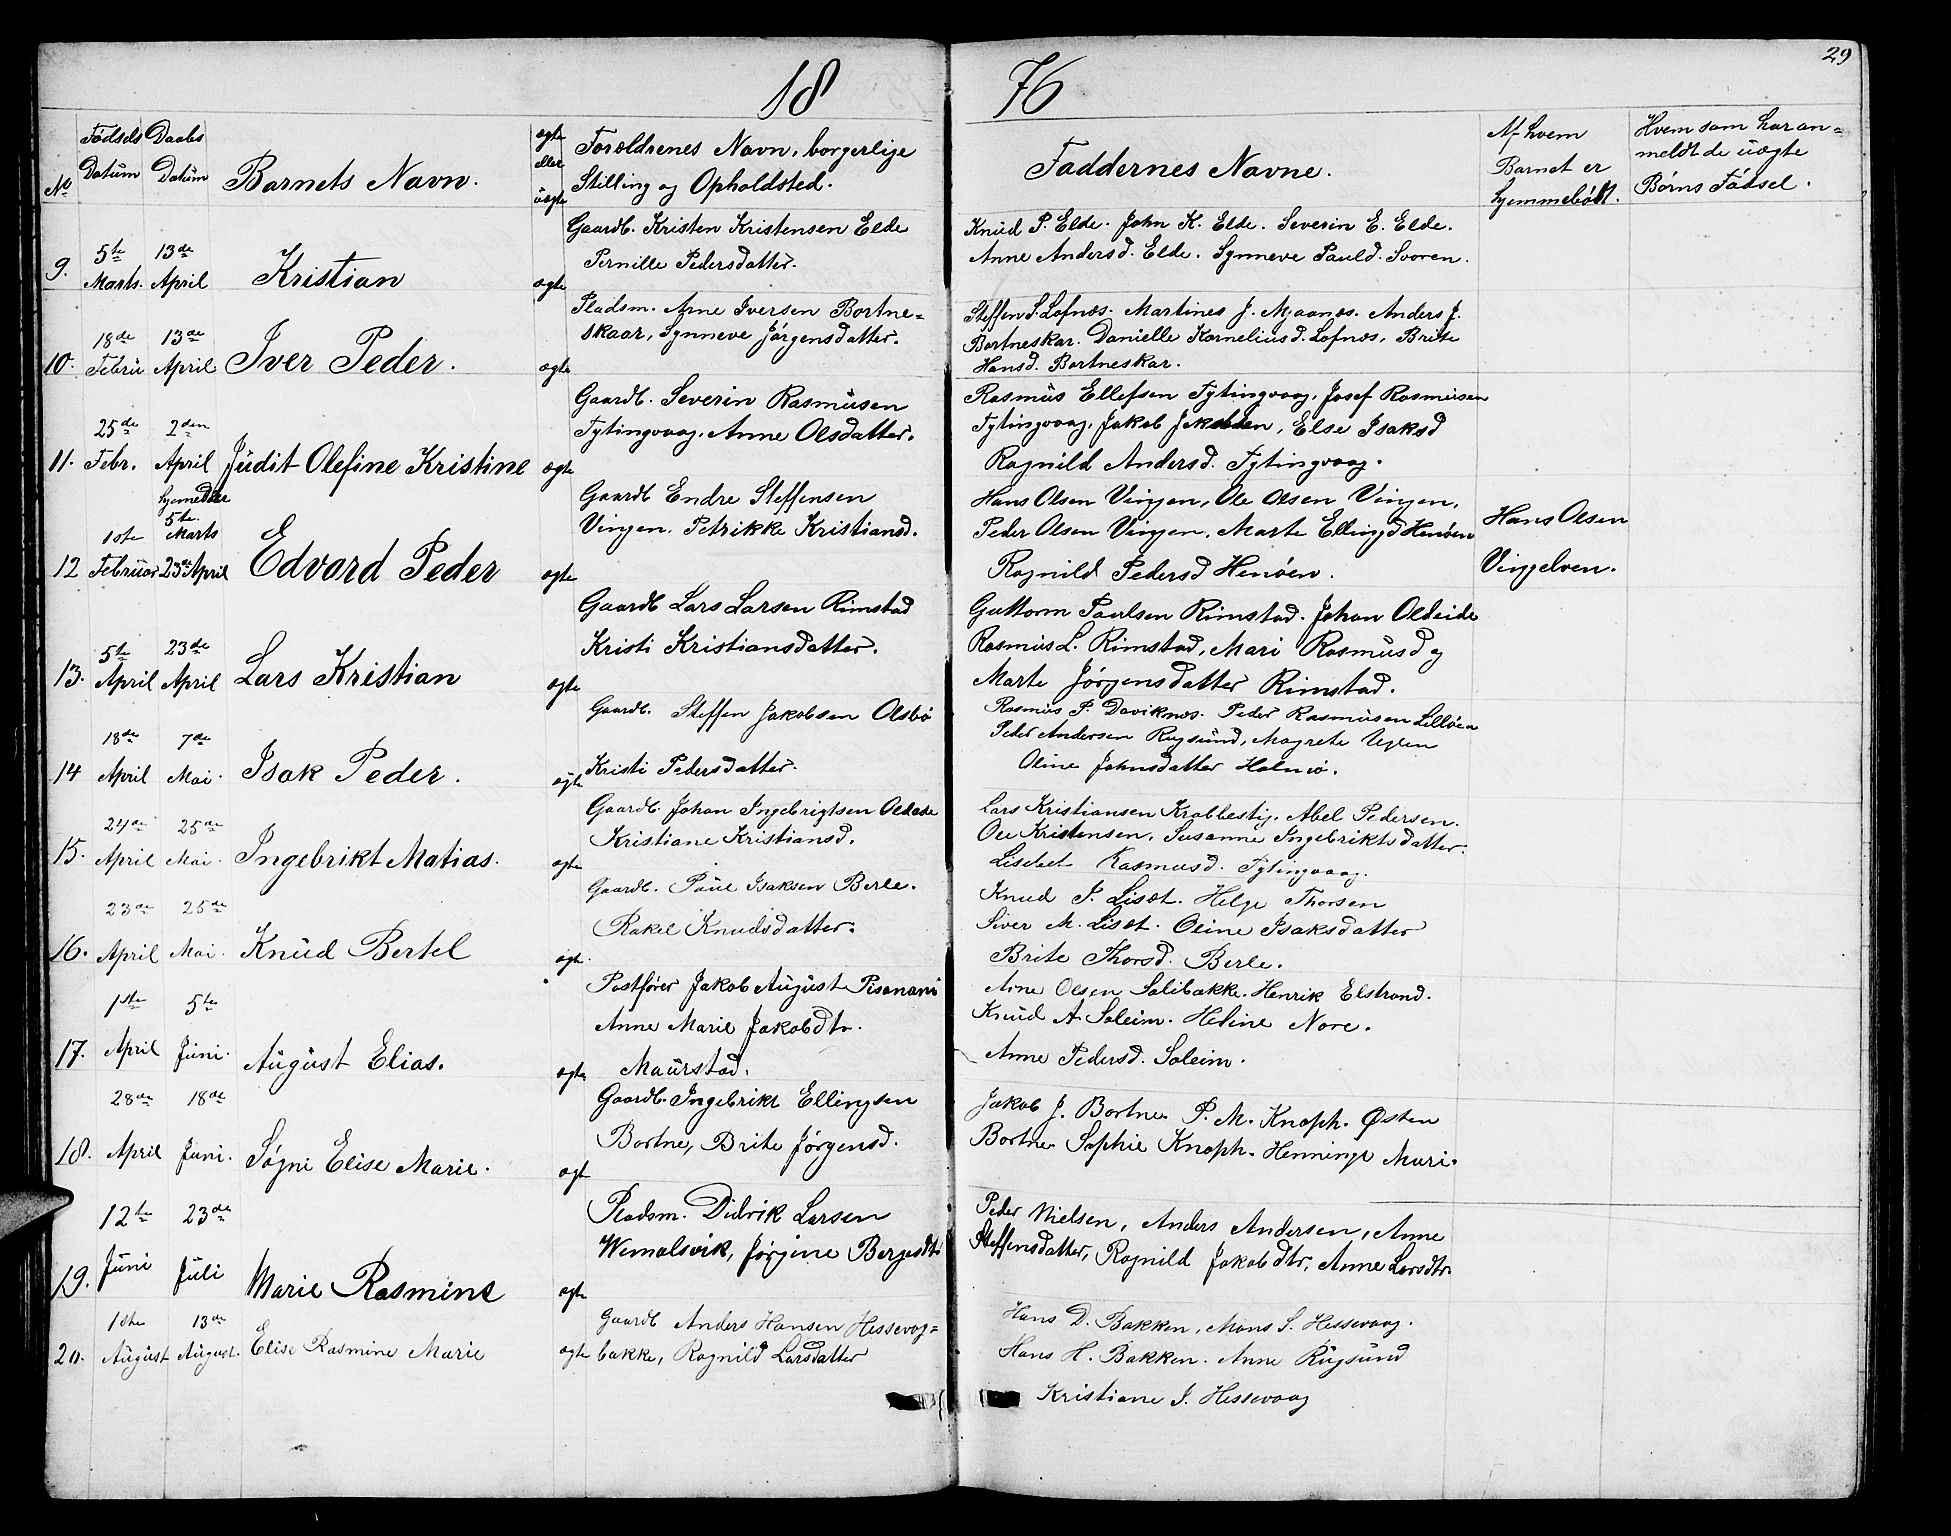 18 76
29
No
Fødsels Datum
Daabs Datum
Barnets Navn.
ægte eller uægte
Forældrenes Navn, borgerlige
Stilling og Opholdsted.
Faddernes Navne.
Af hvem
Barnet er
hjemmedøbt.
Hvem som har an=
meldt de uægte
Børns Fødsel.
9. 5te Marts. 13de April Kristian ægte
Gaardb. Kristen Kristensen Elde
Pernille Pedersdatter.
Knud P. Elde. John K. Elde. Severin E. Elde.
Anne Andersd. Elde. Synneve Pauld. Svoren.
10. 18de Febru 13de April Iver Peder. ægte
Pladsm. Arne Iversen Bortne=
skaar, Synneve Jørgensdatter.
Steffen S. Lofnæs. Martines J. Mjaanæs. Anders J.
Bortneskar. Danielle Korneliusd. Lofnæs, Brite
Hansd. Bortneskar.
11. 25de Febr. 2den April Judit Olefine Kristine ægte
Gaardb. Severin Rasmusen
Tytingvaag. Anne Olsdatter.
Rasmus Ellefsen Tytingvaag, Josef Rasmusen
Tytingvaag, Jakob Jakobsen, Else Isaksd
Ragnild Andersd. Tytingvaag.
12 1ste Februar hjemedøbt 5te Marts 23de April Edvard Peder ægte
Gaardb Endre Steffensen
Vingen. Petrikke Kristiansd.
Hans Olsen Vingen, Ole Olsen Vingen,
Peder Olsen Vingen, Marte Ellingd Henøen
Ragnild Pedersd Henøen.
Hans Olsen
Vingelven.
13. 5te April 23de April Lars Kristian ægte
Gaardb Lars Larsen Rimstad
Kristi Kristiansdatter.
Guttorm Paulsen Rimstad. Johan Oldeide
Rasmus L. Rimstad, Mari Rasmusd og
Marte Jørgensdatter Rimstad.
14 18de April 7de Mai. Isak Peder. ægte
Gaardb. Steffen Jakobsen Olsbø
Kristi Pedersdatter.
Rasmus P. Daviknæs. Peder Rasmusen Lilløen
Peder Andersen Rugsund, Magrete
Oline Johnsdatter Holmø.
15. 24de April 25de Mai. Ingebrikt Matias. ægte
Gaardb. Johan Ingebrigtsen
Kristiane Kristiansd.
Lars Kristiansen Krabbestig. Abel Pedersen.
Ole Kristensen, Susanne Ingebriktsdatter.
Lisebet Rasmusd. Tytingvaag.
16. 23de April 25de Mai. Knud Bertel ægte.
Gaardb. Paul Isaksen Berle.
Rakel Knudsdatter.
Knud P. Liset. Helge Thorsen
Siver M. Liset. Oline Isaksdatter
Brite Thorsd. Berle.
17. 1ste April 5te Juni. August Elias. ægte
Postfører Jakob August Pisanani
Anne Marie Jakobdtr.
Maurstad.
Arne Olsen Salibakke. Henrik Elstrand.
Knud A Soleim. Heline Nore.
Anne Pedersd. Soleim.
18. 28de April 18de Juni. Søgni Elise Marie. ægte
Gaardb. Ingebrikt Ellingsen
Bortne, Brite Jørgensd.
Jakob J. Bortne. P. M. Knoph. Østen
Bortne. Sophie Knoph. Henninge Mari.
19. 12te Juni 23de Juli Marie Rasmine ægte
Pladsm. Didrik Larsen
Wemalsvik, Jørgine Bergesdtr
Peder Nielsen, Anders Andersen, Anne
Steffensdatter, Ragnild Jakobdtr, Anne Larsdtr.
20. 1ste August 13de August. Elise Rasmine Marie ægte
Gaardb Anders Hansen Hessevag=
bakke, Ragnild Larsdatter
Hans D. Bakken, Mons S. Hessevaag.
Hans H. Bakken. Anne Rugsund
Kristiane I. Hessevaag